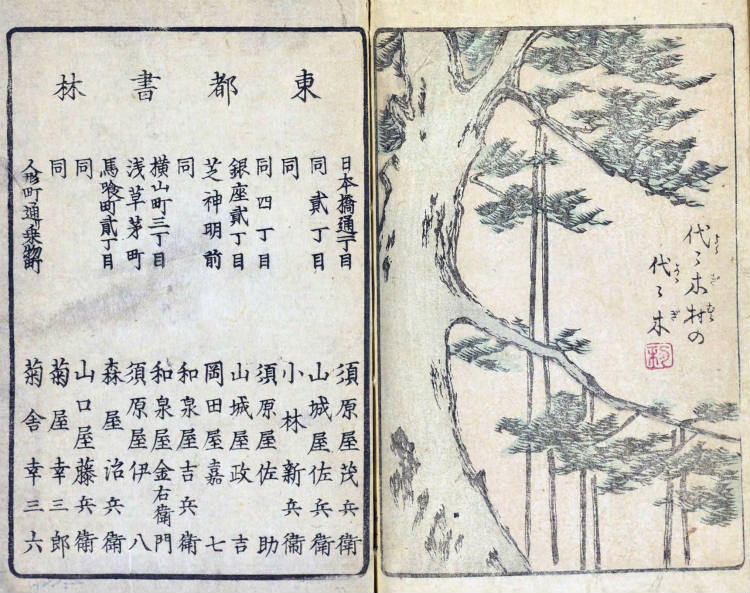 代〻木村の
代〻木
東都書林
日本橋通一丁目 須原屋茂兵衛
同貳丁目 山城屋佐兵衛
同 小林新兵衛
同四丁目 須原屋佐助
銀座貳丁目 山城屋政吉
芝神明前 岡田屋嘉七
同 和泉屋吉兵衛
横山町三丁目 和泉屋金右衛門
浅草茅町 須原屋伊八
馬喰町貳丁目 森屋治兵衛
同 山口屋藤兵衛
同 菊屋幸三郎
人形町通乗物町 菊舎幸三六